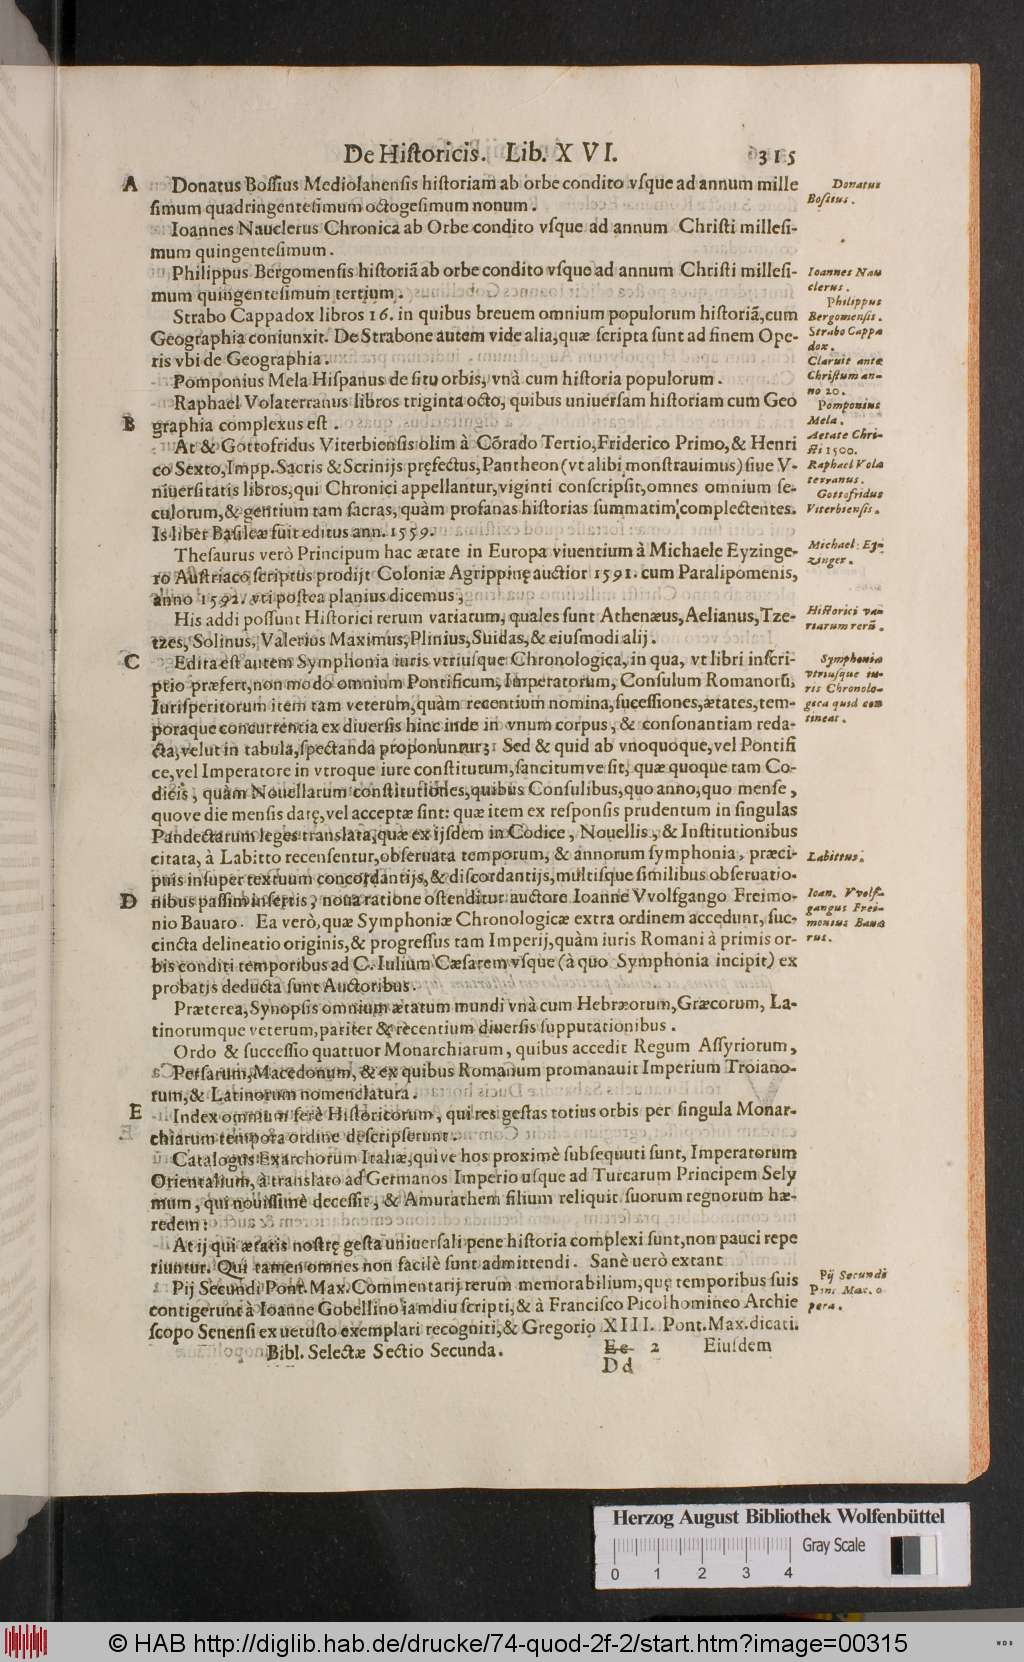 De Historicis. Lib. XVI. 315
A Donatus Bossius Mediolanensis historiam ab orbe condito vsque ad annum mille
simum quadringentesimum octogesimum nonum.
Donatus
Bossius.
Ioannes Nauclerus Chronica ab Orbe condito vsque ad annum Christi millesi-
mum quingentesimum.
Philippus Bergomensis historiã ab orbe condito vsque ad annum Christi millesi-
mum quingentesimum tertium.
Ioannes Nau
clerus.
Philippus
Bergomensis.
Strabo Cappadox libros 16. in quibus breuem omnium populorum historiã, cum
Geographia coniunxit. De Strabone autem vide alia, quæ scripta sunt ad finem Ope-
ris vbi de Geographia.
Strabo Cappa
dox.
Claruit ante
Christum an-
no 20.
Pomponius Mela Hispanus de situ orbis, vnà cum historia populorum.
Raphael Volaterranus libros triginta octo, quibus uniuersam historiam cum Geo
B graphia complexus est.
Pomponius
Mela.
Aetate Chri-
sti 1500.
Raphael Vola
terranus.
At & Gottofridus Viterbiensis olim à Cõrado Tertio, Friderico Primo, & Henri
co Sexto, Impp. Sacris & Scrinijs pręfectus, Pantheon (vt alibi monstrauimus) siue V-
niuersitatis libros, qui Chronici appellantur, viginti conscripsit, omnes omnium se-
culorum, & gentium tam sacras, quàm profanas historias summatim complectentes.
Is liber Basileæ fuit editus ann. 1559.
Gottofridus
Viterbiensis.
Thesaurus verò Principum hac ætate in Europa viuentium à Michaele Eyzinge-
ro Austriaco scriptus prodijt Coloniæ Agrippinę auctior 1591. cum Paralipomenis,
anno 1592. vti postea planius dicemus,
Michael: Eyn
zinger.
His addi possunt Historici rerum variarum, quales sunt Athenæus, Aelianus, Tze-
tzes, Solinus, Valerius Maximus, Plinius, Suidas, & eiusmodi alij.
Historici va-
riarum rerũ.
C Edita est autem Symphonia iuris vtriusque Chronologica, in qua, vt libri inscri-
ptio præfert, non modo omnium Pontificum, Imperatorum, Consulum Romanorũ,
Iurisperitorum item tam veterum, quàm recentium nomina, sucessiones, ætates, tem-
poraque concurrentia ex diuersis hinc inde in vnum corpus, & consonantiam reda-
cta, velut in tabula, spectanda proponuntur; Sed & quid ab vnoquoque, vel Pontifi
ce, vel Imperatore in vtroque iure constitutum, sancitumve sit, quæ quoque tam Co-
dicis, quàm Nouellarum constitutiones, quibus Consulibus, quo anno, quo mense,
quove die mensis datę, vel acceptæ sint: quæ item ex responsis prudentum in singulas
Pandectarum leges translata, quæ ex ijsdem in Codice, Nouellis, & Institutionibus
citata, à Labitto recensentur, obseruata temporum, & annorum symphonia, præci-
puis insuper textuum concordantijs, & discordantijs, multisque similibus obseruatio-
D nibus passim insertis, noua ratione ostenditur auctore Ioanne VVolfgango Freimo-
nio Bauaro. Ea verò, quæ Symphoniæ Chronologicæ extra ordinem accedunt, suc-
cincta delineatio originis, & progressus tam Imperij, quàm iuris Romani à primis or-
bis conditi temporibus ad C. Iulium Cæsarem vsque (à quo Symphonia incipit) ex
probatis deducta sunt Auctoribus.
Symphonia
vtriusque iu-
ris Chronolo-
gica quid con
tineat.
Labittus.
Ioan. VVolf-
gangus Frei-
monius Baua
rus.
Præterea, Synopsis omnium ætatum mundi vnà cum Hebræorum, Græcorum, La-
tinorumque veterum, pariter & recentium diuersis supputationibus.
Ordo & successio quattuor Monarchiarum, quibus accedit Regum Assyriorum,
Persarum, Macedonum, & ex quibus Romanum promanauit Imperium Troiano-
rum, & Latinorum nomenclatura.
E Index omnium ferè Historicorum, qui res gestas totius orbis per singula Monar-
chiarum tempora ordine descripserunt.
Catalogus Exarchorum Italiæ, qui ve hos proximè subsequuti sunt, Imperatorum
Orientalium, à translato ad Germanos Imperio usque ad Turcarum Principem Sely
mum, qui nouissimè decessit, & Amurathem filium reliquit suorum regnorum hæ-
redem:
At ij qui ætatis nostrę gesta uniuersali pene historia complexi sunt, non pauci repe
riuntur. Qui tamen omnes non facilè sunt admittendi. Sanè uerò extant
Pij Secundi Pont. Max. Commentarij rerum memorabilium, quę temporibus suis
contigerunt à Ioanne Gobellino iamdiu scripti, & à Francisco Picolhomineo Archie
scopo Senensi ex uetusto exemplari recogniti, & Gregorio XIII. Pont. Max. dicati.
Pij Secundi
Pont Max. o
pera.
Bibl. Selectæ Sectio Secunda. Ee 2 Eiusdem
Dd
Herzog August Bibliothek Wolfenbüttel
Gray Scale
0 1 2 3 4
© HAB http://diglib.hab.de/drucke/74-quod-2f-2/start.htm?image=00315